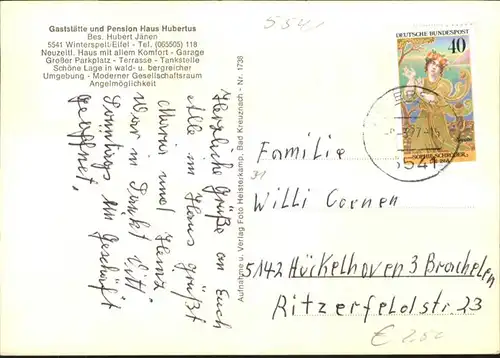 Gaststätte und Pension Haus Hubertus
Bes. Hubert Jänen
5541 Winterspelt/Eifel - Tel. (065505) 118
Neuzeitl. Haus mit allem Komfort - Garage
Großer Parkplatz - Terrasse - Tankstelle
Schöne Lage in wald- u. bergreicher
Umgebung - Moderner Gesellschaftsraum
Angelmöglichkeit
Herzliche Grüße an Euch
Alle im Haus grüßt
Maria und Heinz
War in Sankt Vith
Sonntags im Geschäft
geöffnet.
Aufnahme u. Verlag Foto Heisterkamp, Bad Kreuznach - Nr. 1738
5541
DEUTSCHE BUNDESPOST
40
SOPHIE SCHRÖDER
5541
Familie
Willi Cornen
5142 Hückelhoven 3 Brachelen
Ritzerfeldstr. 23